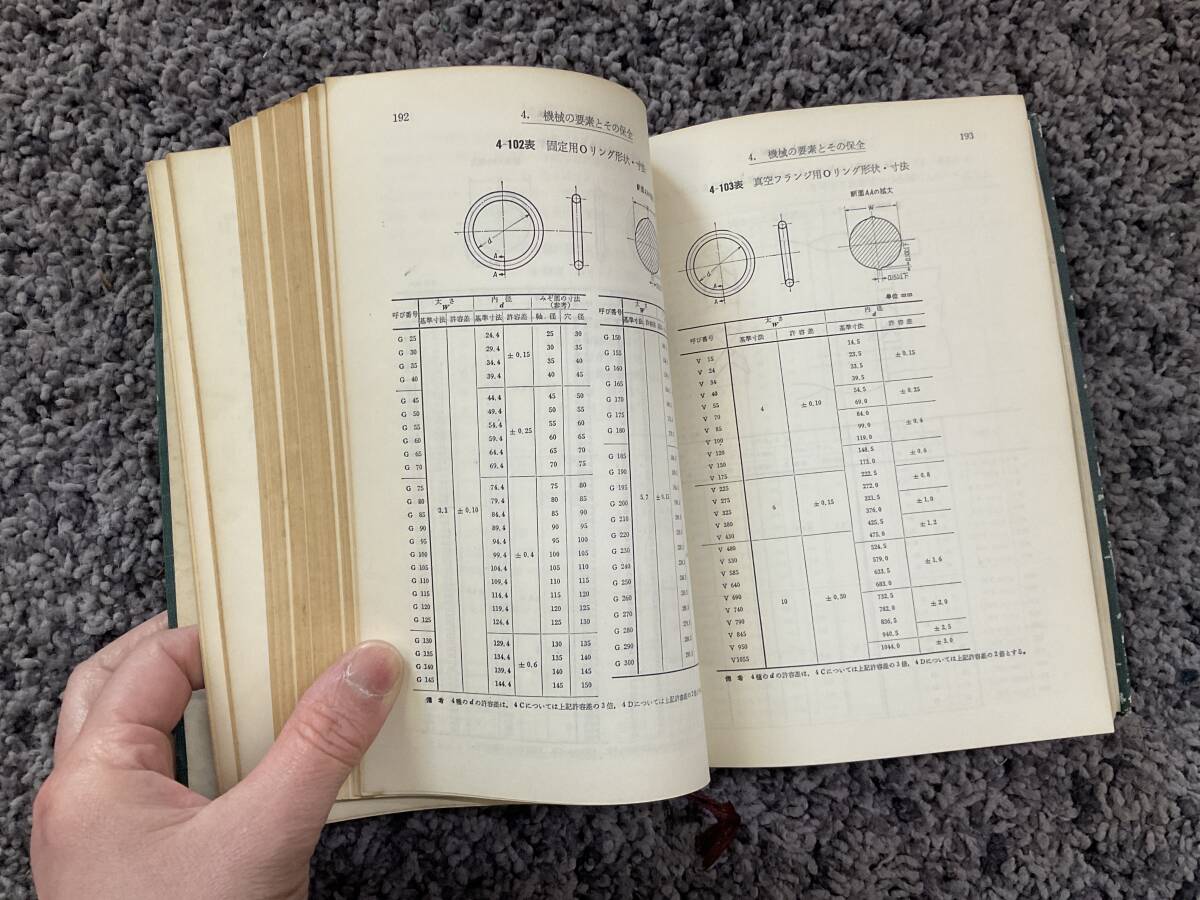 192
4. 機械の要素とその保全
4-102表 固定用Oリング形状・寸法
d
A
A
呼び番号 太さ W 内径 d みぞ部の寸法(参考)
基準寸法 許容差 基準寸法 許容差 軸径 穴径
G 25 3.1 ±0.10 24.4 ±0.15 25 30
G 30 29.4 30 35
G 35 34.4 35 40
G 40 39.4 40 45
G 45 44.4 ±0.25 45 50
G 50 49.4 50 55
G 55 54.4 55 60
G 60 59.4 60 65
G 65 64.4 65 70
G 70 69.4 70 75
G 75 74.4 ±0.4 75 80
G 80 79.4 80 85
G 85 84.4 85 90
G 90 89.4 90 95
G 95 94.4 95 100
G 100 99.4 100 105
G 105 104.4 105 110
G 110 109.4 110 115
G 115 114.4 115 120
G 120 119.4 120 125
G 125 124.4 125 130
G 130 129.4 ±0.6 130 135
G 135 134.4 135 140
G 140 139.4 140 145
G 145 144.4 145 150
呼び番号 太さ W
基準寸法 許容差
G 150 5.7
G 155
G 160
G 165
G 170
G 175
G 180
G 185
G 190
G 195
G 200
G 210
G 220
G 230
G 240
G 250
G 260
G 270
G 280
G 290
G 300
備考 4種のdの許容差は,4Cについては上記許容差の3倍,4Dについては上記許容差の2倍
193
4. 機械の要素とその保全
4-103表 真空フランジ用Oリング形状・寸法
断面AAの拡大
W
d
A
A
0.15以下
単位 mm
呼び番号 太さ W 内径 d
基準寸法 許容差 基準寸法 許容差
V 15 4 ±0.10 14.5 ±0.15
V 24 23.5
V 34 33.5
V 40 39.5
V 55 54.5 ±0.25
V 70 69.0
V 85 84.0 ±0.4
V 100 99.0
V 120 119.0
V 150 148.5 ±0.6
V 175 173.0
V 225 6 ±0.15 222.5 ±0.8
V 275 272.0
V 325 321.5 ±1.0
V 380 376.0
V 430 425.5 ±1.2
V 480 10 ±0.30 475.0
V 530 524.5 ±1.6
V 585 579.0
V 640 633.5
V 690 683.0
V 740 732.5 ±2.0
V 790 782.0
V 845 836.5
V 950 940.5 ±2.5
V1055 1044.0 ±3.0
備考 4種のdの許容差は,4Cについては上記許容差の3倍,4Dについては上記許容差の2倍とする。